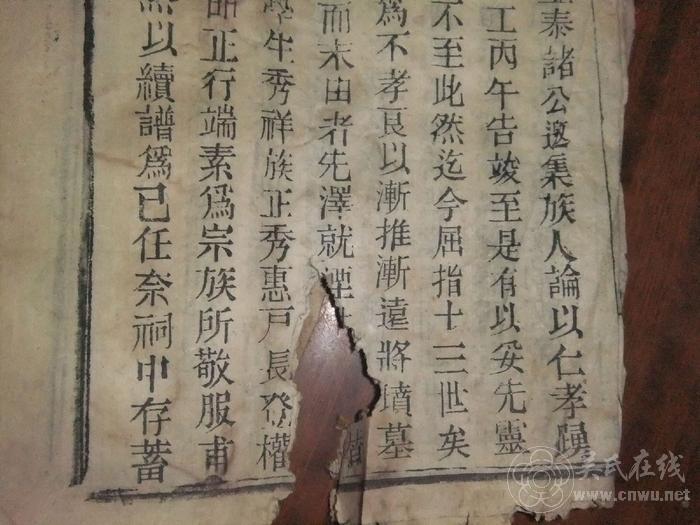 泰諸公邀集族人論以仁孝
工丙午告竣至是有以妥先靈
不至此然迄今屈指十三世矣
爲不孝良以漸推漸遠將墳墓
而末由者先澤就湮
生秀祥族正秀惠戶長登權
正行端素爲宗族所敬服甫
以續譜爲己任奈祠中存蓄
吴氏在线
www.cnwu.net